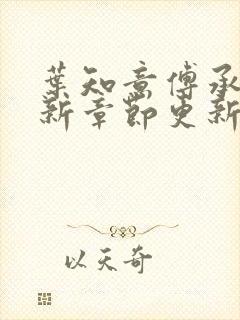 葉知意傅承
新章節更新
以天奇